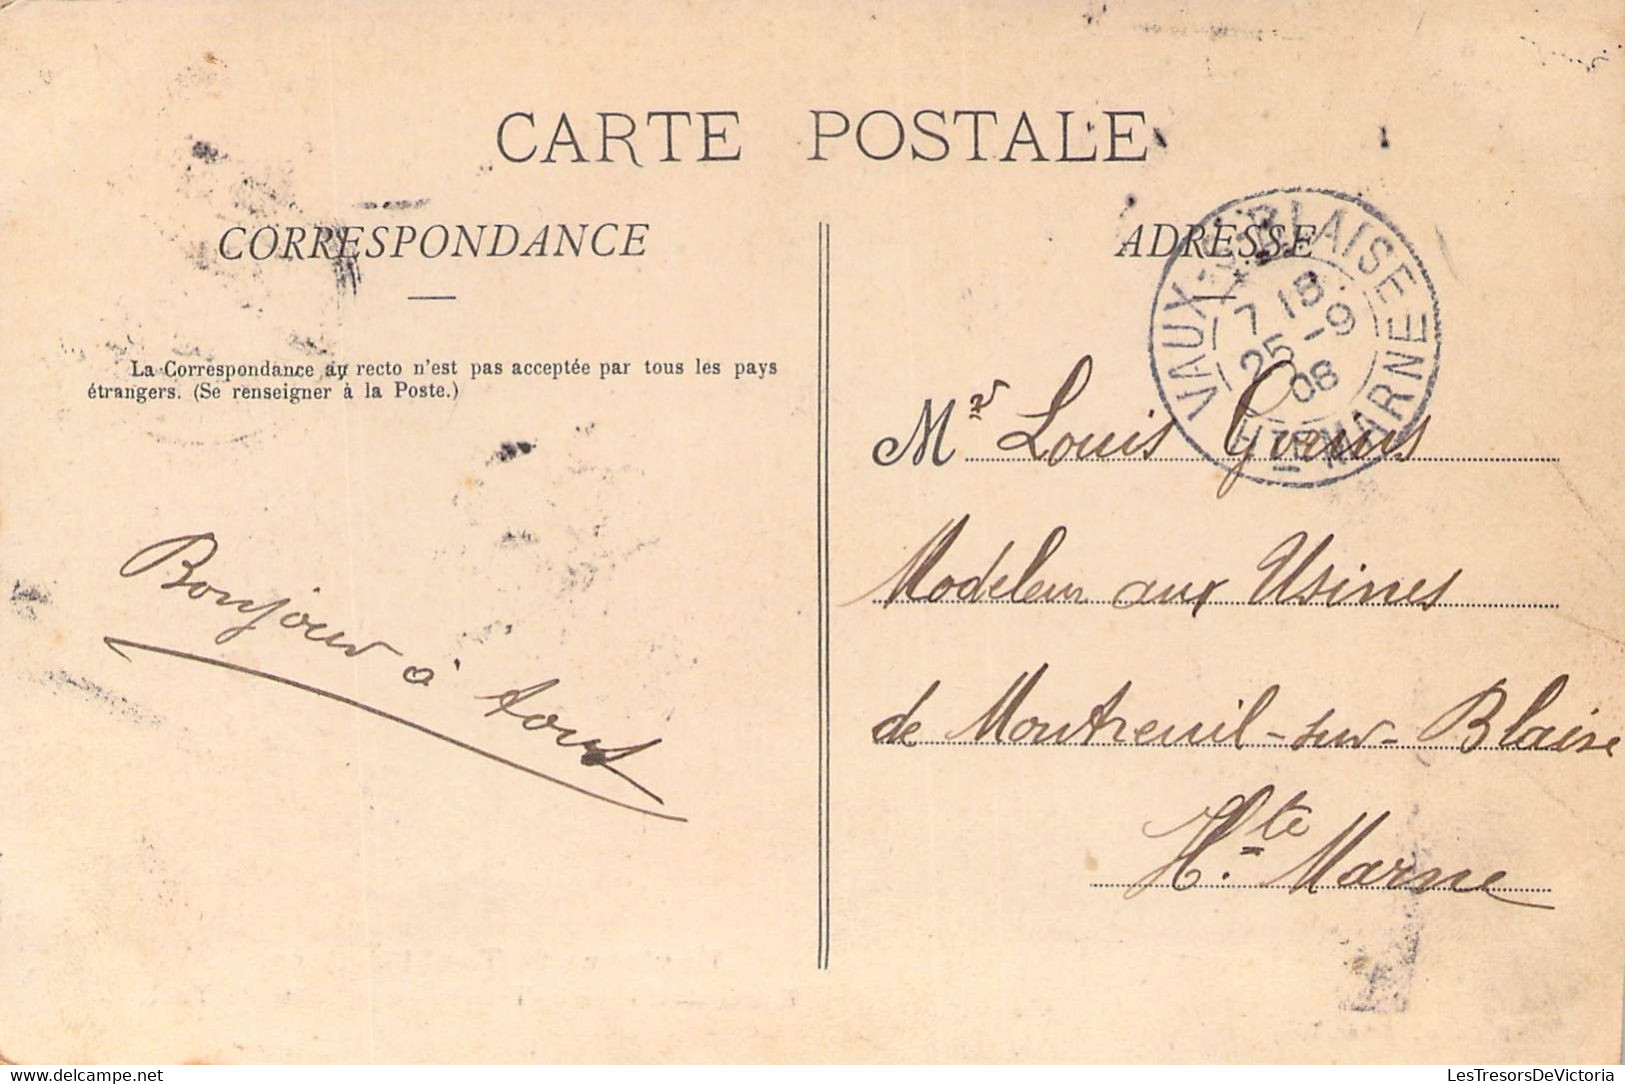 CARTE POSTALE
CORRESPONDANCE
La Correspondance au recto n'est pas acceptée par tous les pays
étrangers. (Se renseigner à la Poste.)
Bonjour à tous
ADRESSE
VAUX-S-BLAISE
7 15
25 -9
08
HTE MARNE
Mr Louis
Modeleur aux Usines
de Montreuil-sur-Blaise
Hte Marne
delcampe.net
LesTresorsDeVictoria